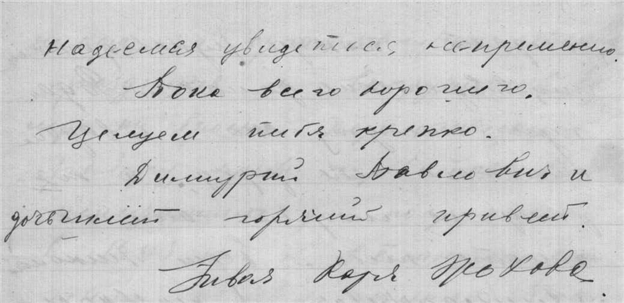 Надеемся увидеться, непременно.
Пока всего хорошего.
Целуем тебя крепко.
Димитрий Павлович и
горячий привет.
Твоя Жохова